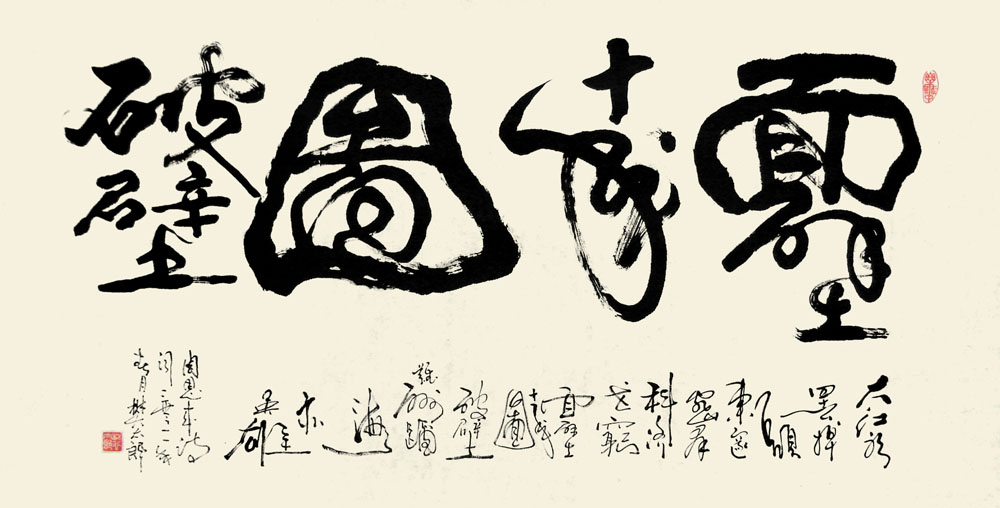 面壁十年圖破壁
大江歌
罷掉
頭
東邃
密群
科濟
世窮
面壁
十年
圖
破壁
難酬蹈
海
亦
英雄
周恩來詩
春月